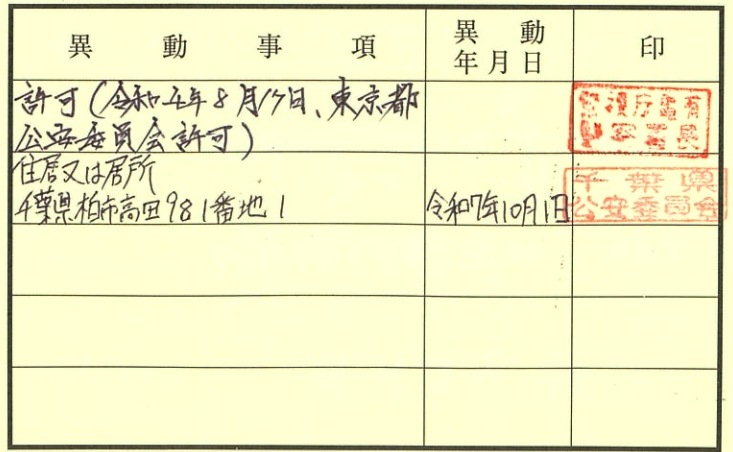 異動事項
異動
年月日
印
許可(令和4年8月17日、東京都
公安委員会許可)
住居又は居所
千葉県柏市高田981番地1
令和7年10月1日
千葉県
公安委員会